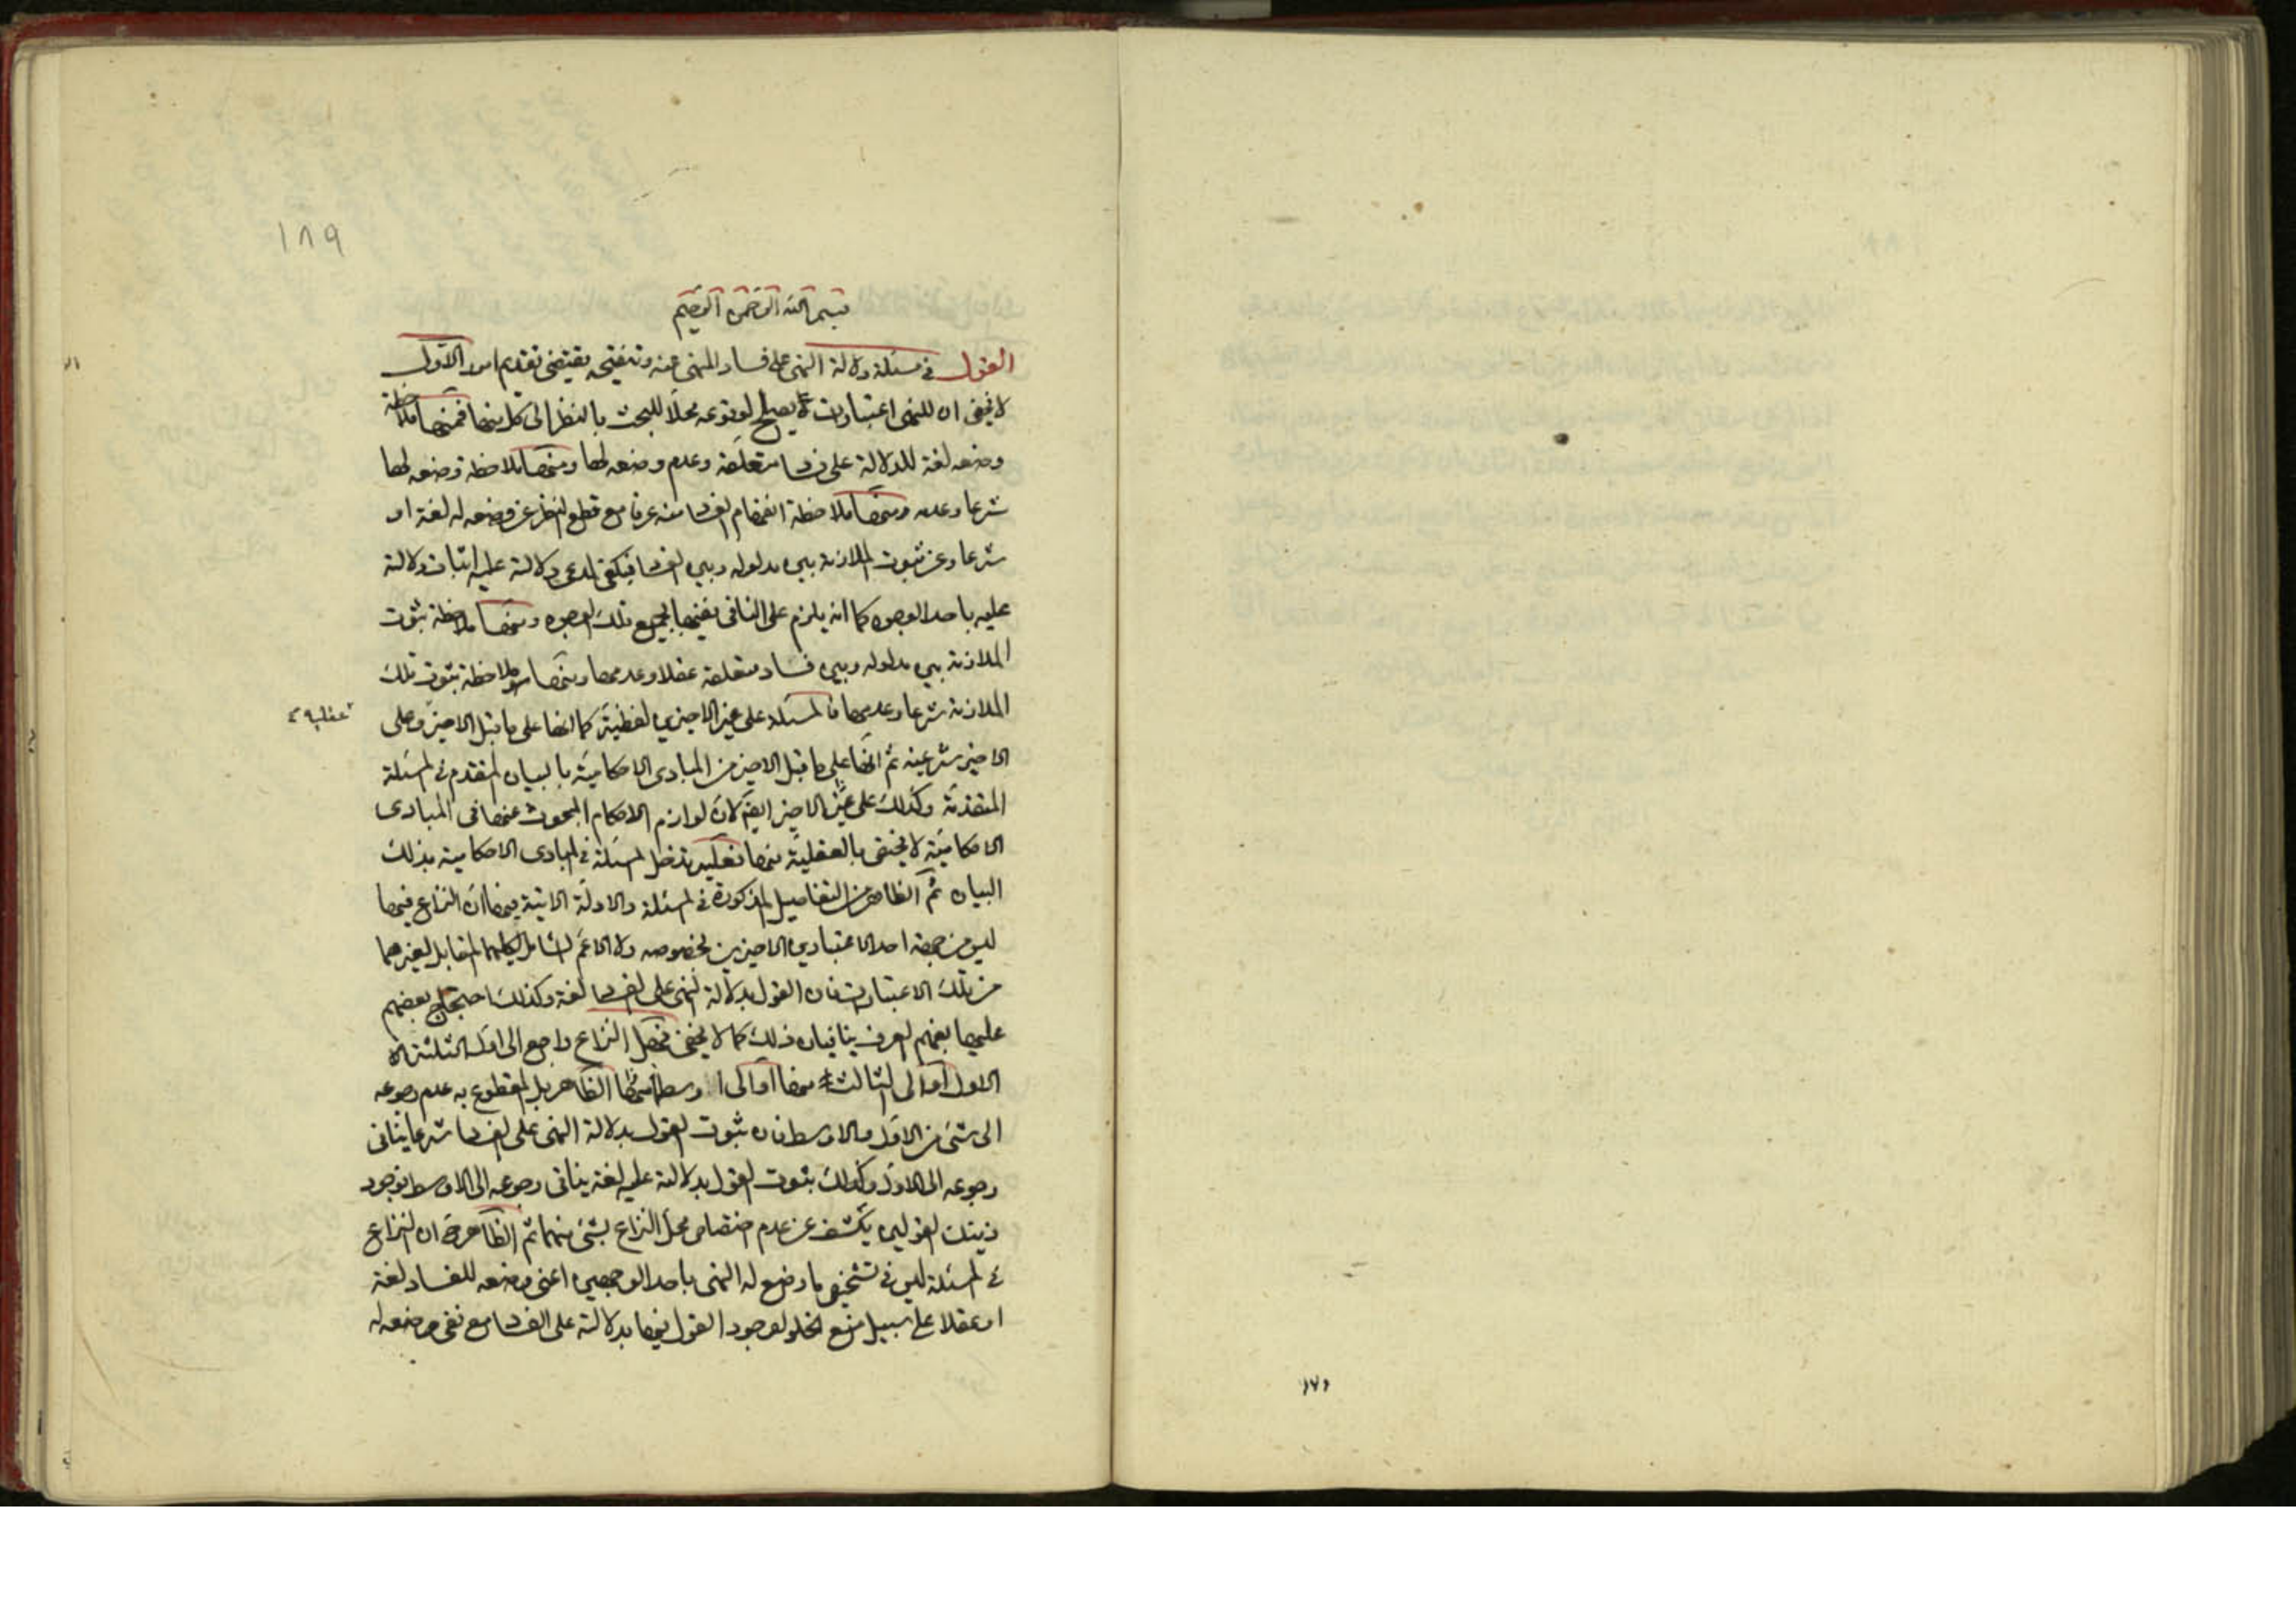 ١٨٩
بسم الله الرحمن الرحيم
القول في مسئلة دلالة النهى على فساد المنهى عنه وتنقيحه يقتضى تقديم امور الاول
لا يخفى ان للنهى اعتبارات يصلح لوقوعه محلا للبحث بالنظر الى كل منها فمنها ملاحظة
وضعه لغة للدلالة على فساد متعلقه وعدم وضعه لها ومنها ملاحظة وضعه لها
شرعا وعدمه ومنها ملاحظة انفهام الفساد منه عرفا مع قطع النظر عن وضعه له لغة او
شرعا وعن ثبوت الملازمة بين مدلوله وبين الفساد فيكفى لمدعى دلالته عليه اثبات دلالته
عليه باحد الوجوه كما انه يلزم على النافى نفيها بجميع تلك الوجوه ومنها ملاحظة ثبوت
الملازمة بين مدلوله وبين فساد متعلقه عقلا وعدمها ومنها ملاحظة ثبوت تلك
الملازمة شرعا وعدمها فالمسئلة على غير الاخيرين لفظية كما انها على ما قبل الاخير وعلى
عقلية
الاخير شرعية ثم انها على ما قبل الاخير من المبادى الاحكامية بالبيان المتقدم في المسئلة
المتقدمة وكذلك على الاخير ايضا لان لوازم الاحكام المبحوث عنها فى المبادى
الاحكامية لا يختص بالعقلية منها فعليه تدخل المسئلة في المبادى الاحكامية بذلك
البيان ثم الظاهر من التفاصيل المذكورة في المسئلة والادلة الاتية فيها ان النزاع فيها
ليس من جهة احد الاعتبارين الاخيرين بخصوصه ولا الاعم الشامل لكليهما المقابل لغيرهما
من تلك الاعتبارات فان القول بدلالة النهى على الفساد لغة وكذلك احتجاج بعضهم
عليها بفهم العرف ينافيان ذلك كما لا يخفى فمحل النزاع راجع الى احد الثلثة
الاول الظاهر بل المقطوع به عدم رجوعه
الى شئ من الاول والاوسط فان ثبوت القول بدلالة النهى على الفساد شرعا ينافى
رجوعه الى الاول وكذلك ثبوت القول بدلالته عليه لغة ينافى رجوعه الى الاوسط فوجود
ذينك القولين يكشف عن عدم اختصاص محل النزاع بشئ منهما ثم الظاهر ان النزاع
في المسئلة ليس في تشخيص ما وضع له النهى باحد الوجهين اعنى وضعه للفساد لغة
او عقلا على سبيل منع الخلو لوجود القول فيها بدلالته على الفساد مع نفى وضعه له
١٧١